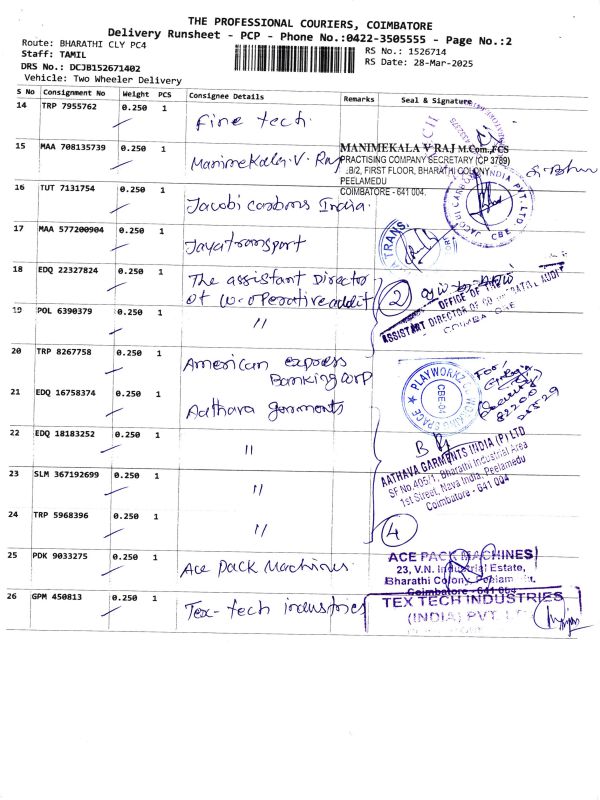 THE PROFESSIONAL COURIERS, COIMBATORE
Delivery Runsheet - PCP - Phone No.:0422-3505555 - Page No.:2
Route: BHARATHI CLY PC4
RS No.: 1526714
Staff: TAMIL
RS Date: 28-Mar-2025
DRS No.: DCJB152671402
Vehicle: Two Wheeler Delivery
S No Consignment No Weight PCS Consignee Details Remarks Seal & Signature
14 TRP 7955762 0.250 1 Fine tech.
15 MAA 708135739 0.250 1 Manimekalai. V. Raj
MANIMEKALA V RAJ M.Com.,FCS
PRACTISING COMPANY SECRETARY (CP 3769)
FIRST FLOOR, BHARATHI COLONY
PEELAMEDU
COIMBATORE - 641 004.
16 TUT 7131754 0.250 1 Jacobi carbons India.
JACOBI CARBONS INDIA PVT. LTD
CBE
17 MAA 577200904 0.250 1 Jayatransport
18 EDQ 22327824 0.250 1 The assistant Director
of co-operative audit
2
OFFICE OF THE
ASSISTANT DIRECTOR OF CO-OPERATIVE AUDIT
COIMBATORE
19 POL 6390379 0.250 1 "
20 TRP 8267758 0.250 1 American express
Banking corp
PLAYWORKZ
CBE-04
For,
21 EDQ 16758374 0.250 1 Aathava garments
22 EDQ 18183252 0.250 1 "
AATHAVA GARMENTS INDIA (P) LTD
SF No.405/1, Bharathi Industrial Area
1st Street, Nava India, Peelamedu
Coimbatore - 641 004
23 SLM 367192699 0.250 1 "
24 TRP 5968396 0.250 1 "
4
25 PDK 9033275 0.250 1 Ace Pack Machines.
ACE PACK MACHINES
23, V.N. Industrial Estate,
Bharathi Colony, Peelamedu.
Coimbatore - 641 004
26 GPM 450813 0.250 1 Tex-tech industries
TEX TECH INDUSTRIES
(INDIA) PVT. LTD